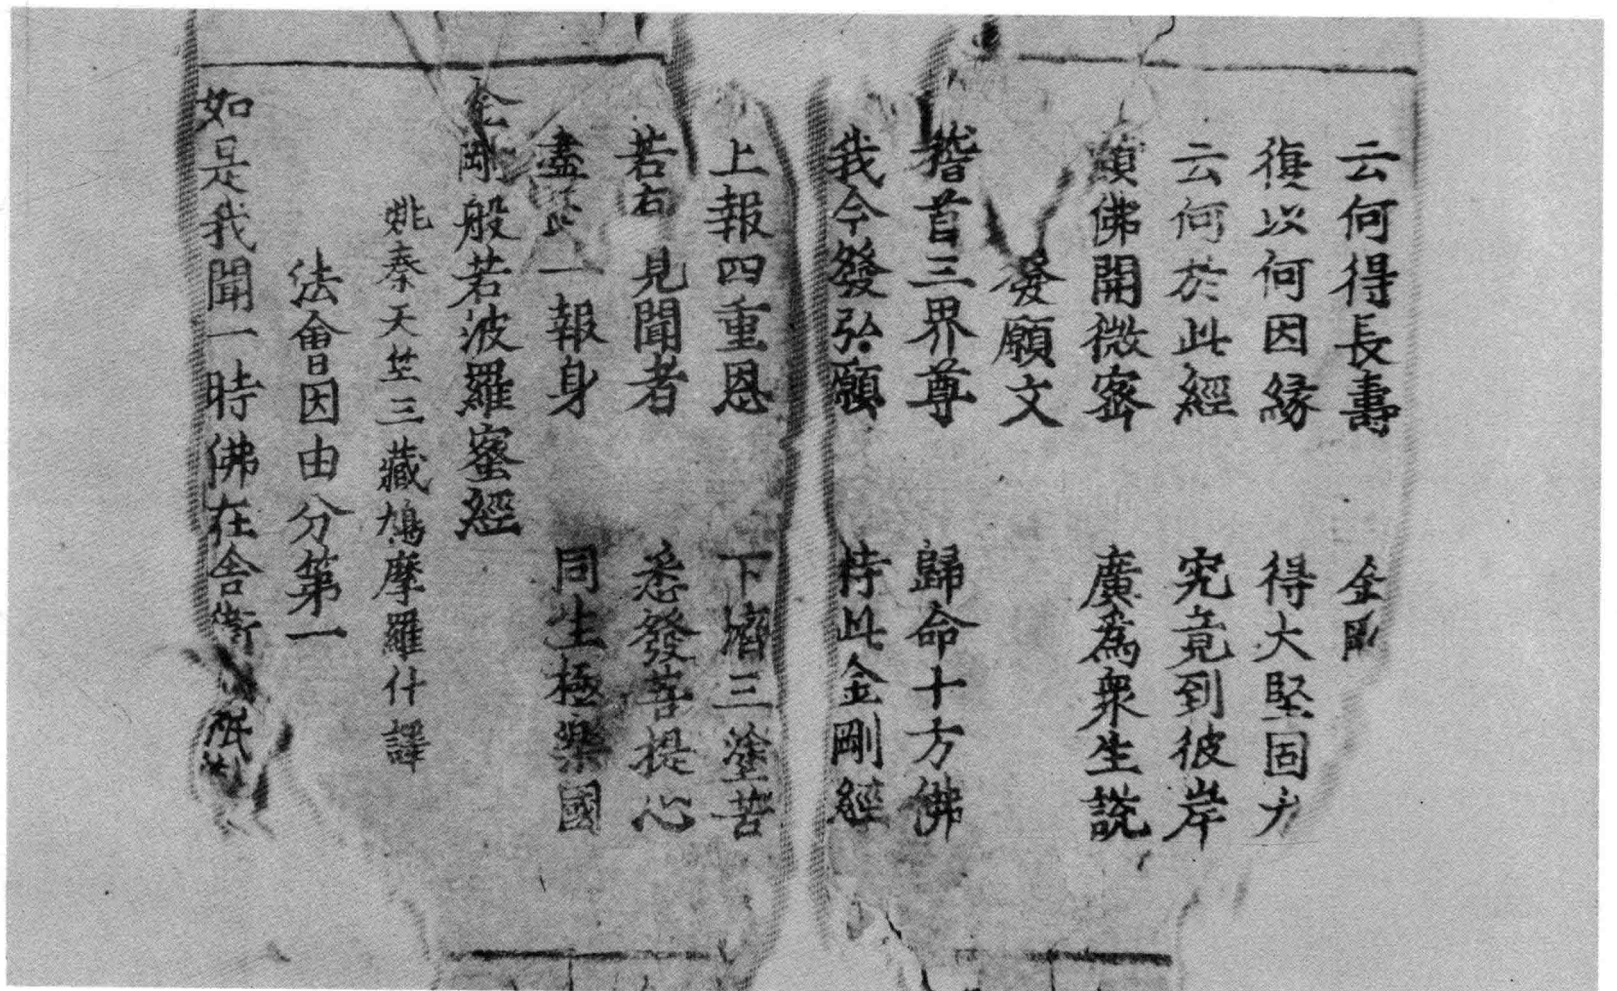 云何得長壽 金剛
復以何因緣 得大堅固力
云何於此經 究竟到彼岸
願佛開微密 廣爲衆生說
發願文
稽首三界尊 歸命十方佛
我今發弘願 持此金剛經
上報四重恩 下濟三塗苦
若有見聞者 悉發菩提心
盡此一報身 同生極樂國
金剛般若波羅蜜經
姚秦天竺三藏鳩摩羅什譯
法會因由分第一
如是我聞一時佛在舍衛國祇